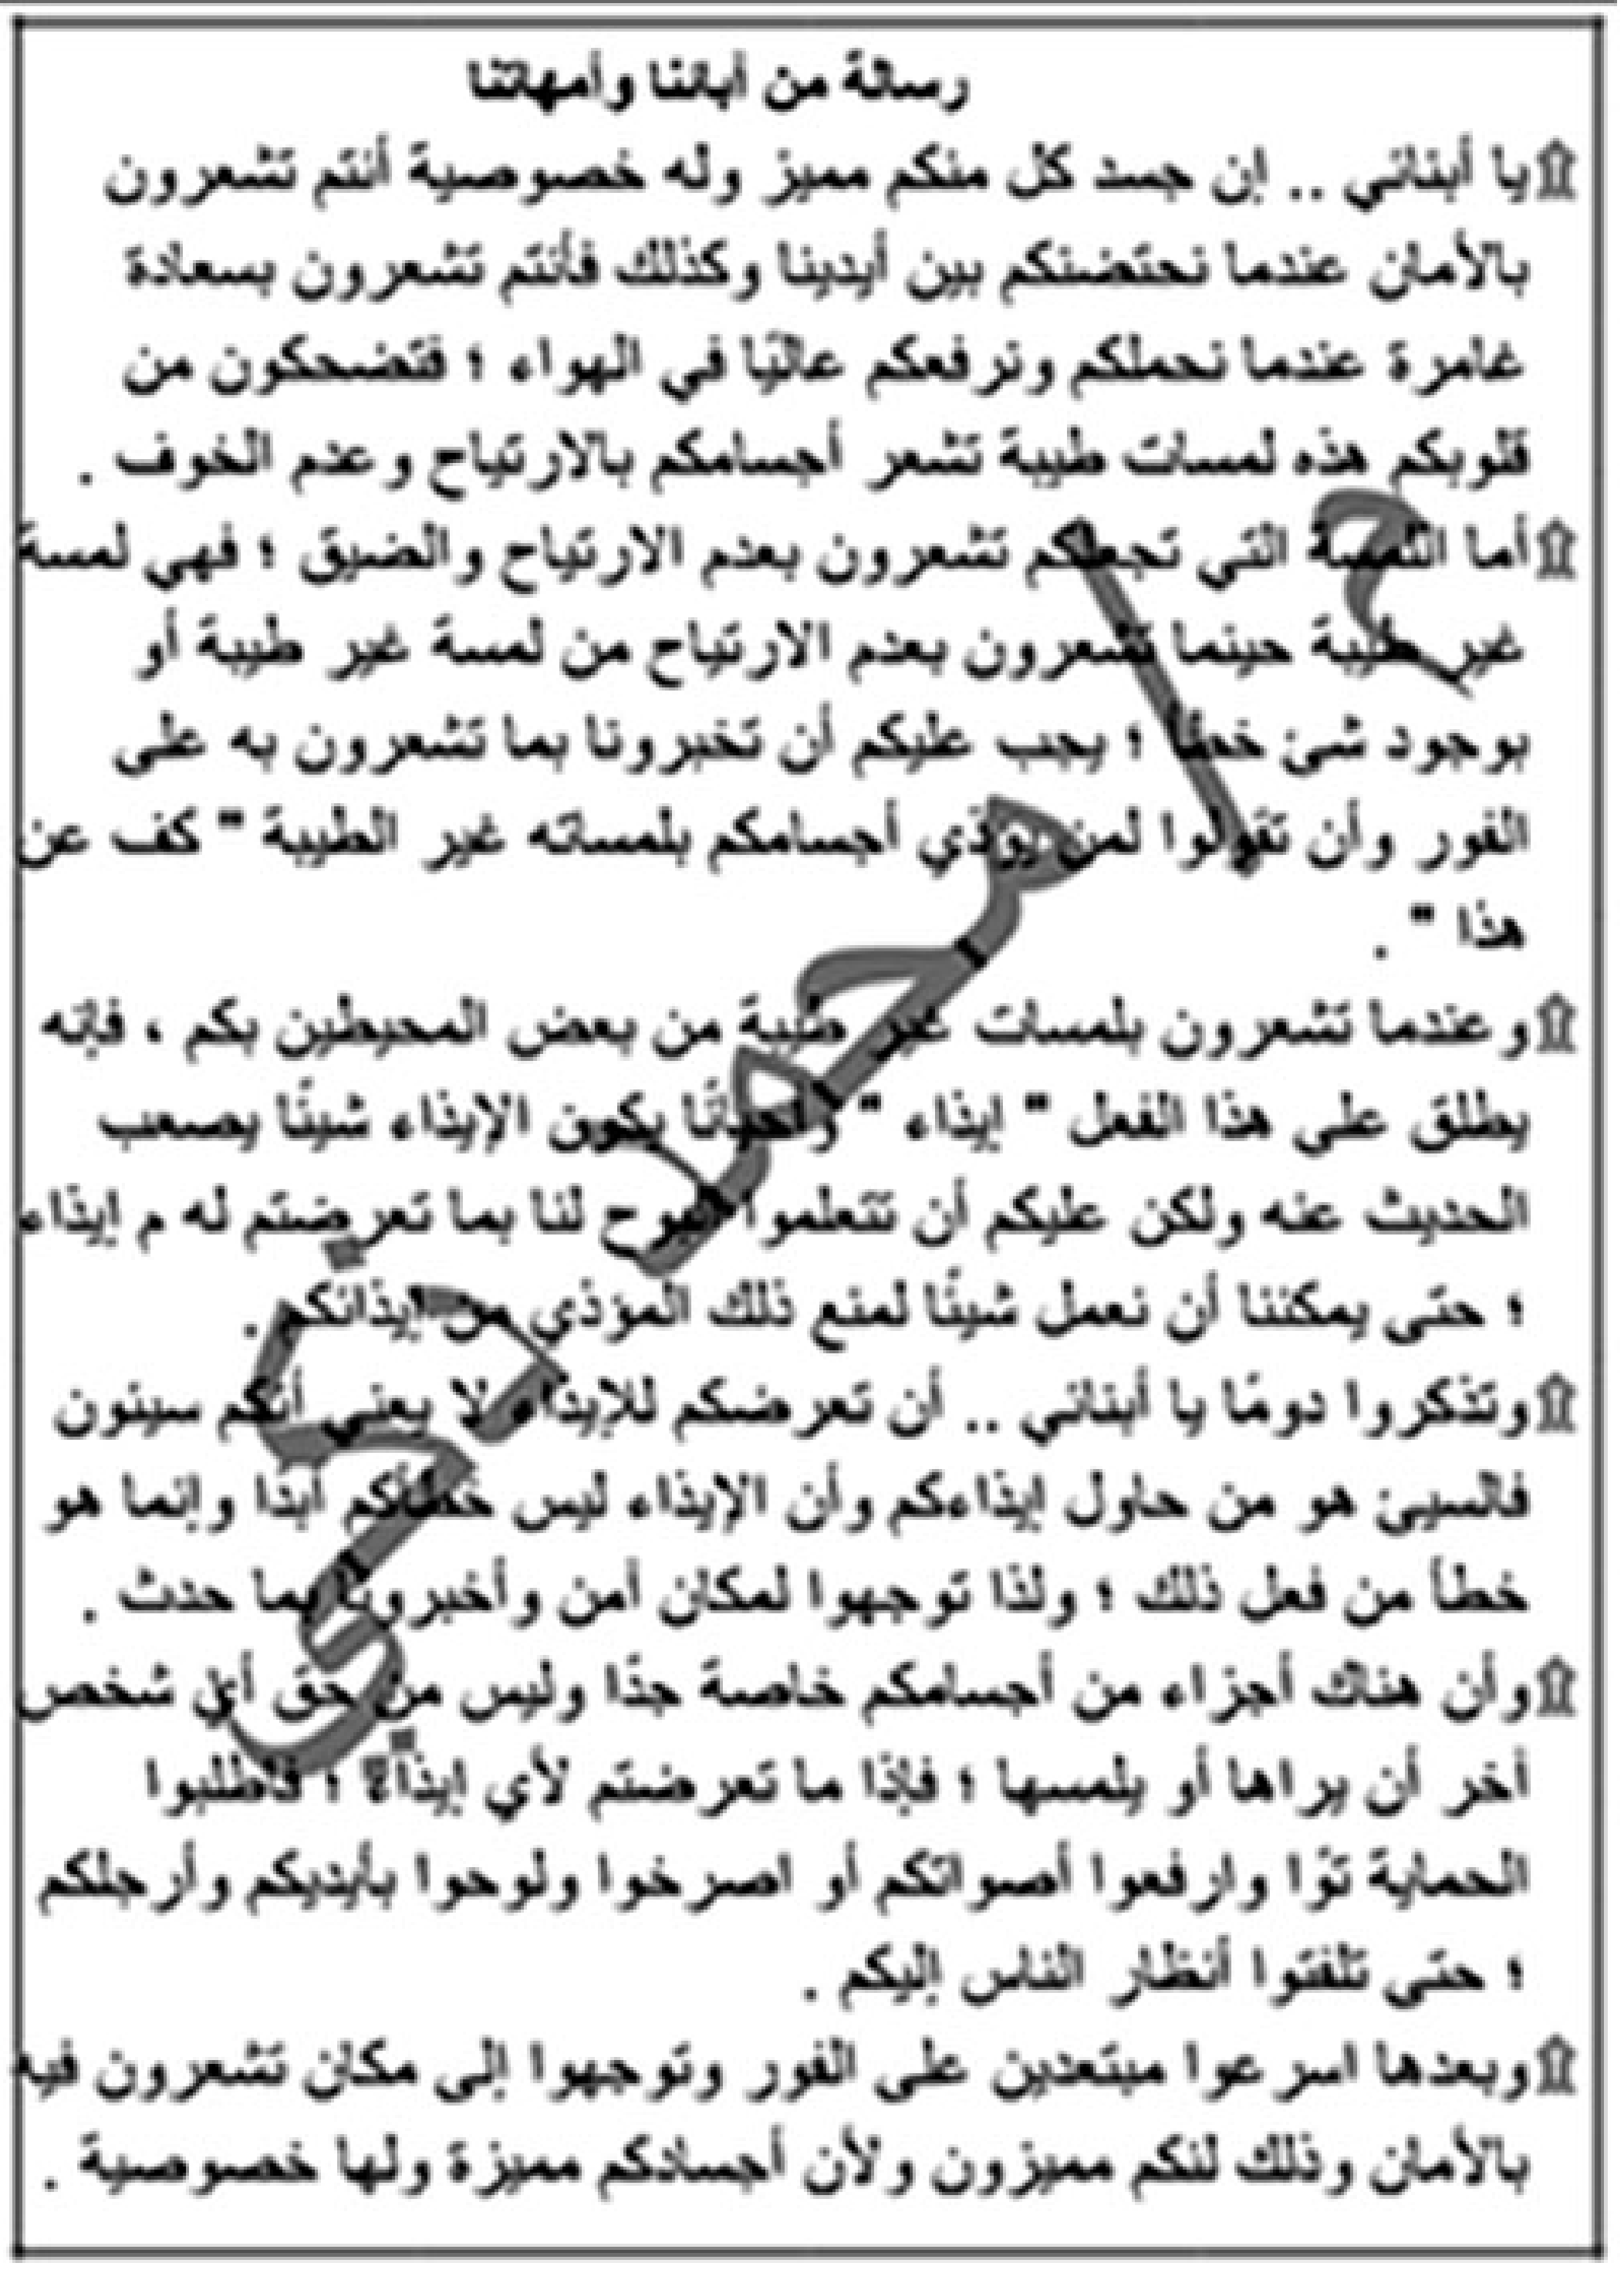 رسالة من أبائنا وأمهاتنا
يا أبنائي .. إن جسد كل منكم مميز وله خصوصية أنتم تشعرون
بالأمان عندما نحتضنكم بين أيدينا وكذلك فأنتم تشعرون بسعادة
غامرة عندما نحملكم ونرفعكم عاليًا في الهواء ؛ فتضحكون من
قلوبكم هذه لمسات طيبة تشعر أجسامكم بالارتياح وعدم الخوف .
أما اللمسة التي تجعلكم تشعرون بعدم الارتياح والضيق ؛ فهي لمسة
غير طيبة حينما تشعرون بعدم الارتياح من لمسة غير طيبة أو
بوجود شئ خطأ ؛ يجب عليكم أن تخبرونا بما تشعرون به على
الفور وأن تقولوا لمن يؤذي أجسامكم بلمساته غير الطيبة " كف عن
هذا " .
وعندما تشعرون بلمسات غير طيبة من بعض المحيطين بكم ، فإنه
يطلق على هذا الفعل " إيذاء " وأحيانًا يكون الإيذاء شيئًا يصعب
الحديث عنه ولكن عليكم أن تتعلموا البوح لنا بما تعرضتم له م إيذاء
؛ حتى يمكننا أن نعمل شيئًا لمنع ذلك المؤذي من إيذائكم .
وتذكروا دومًا يا أبنائي .. أن تعرضكم للإيذاء لا يعني أنكم سيئون
فالسيئ هو من حاول إيذاءكم وأن الإيذاء ليس خطأكم أبدًا وإنما هو
خطأ من فعل ذلك ؛ ولذا توجهوا لمكان أمن وأخبرونا بما حدث .
وأن هناك أجزاء من أجسامكم خاصة جدًا وليس من حق أي شخص
أخر أن يراها أو يلمسها ؛ فإذا ما تعرضتم لأي إيذاء ؛ فاطلبوا
الحماية توًا وارفعوا أصواتكم أو اصرخوا ولوحوا بأيديكم وأرجلكم
؛ حتى تلفتوا أنظار الناس إليكم .
وبعدها اسرعوا مبتعدين على الفور وتوجهوا إلى مكان تشعرون فيه
بالأمان وذلك لنكم مميزون ولأن أجسادكم مميزة ولها خصوصية .